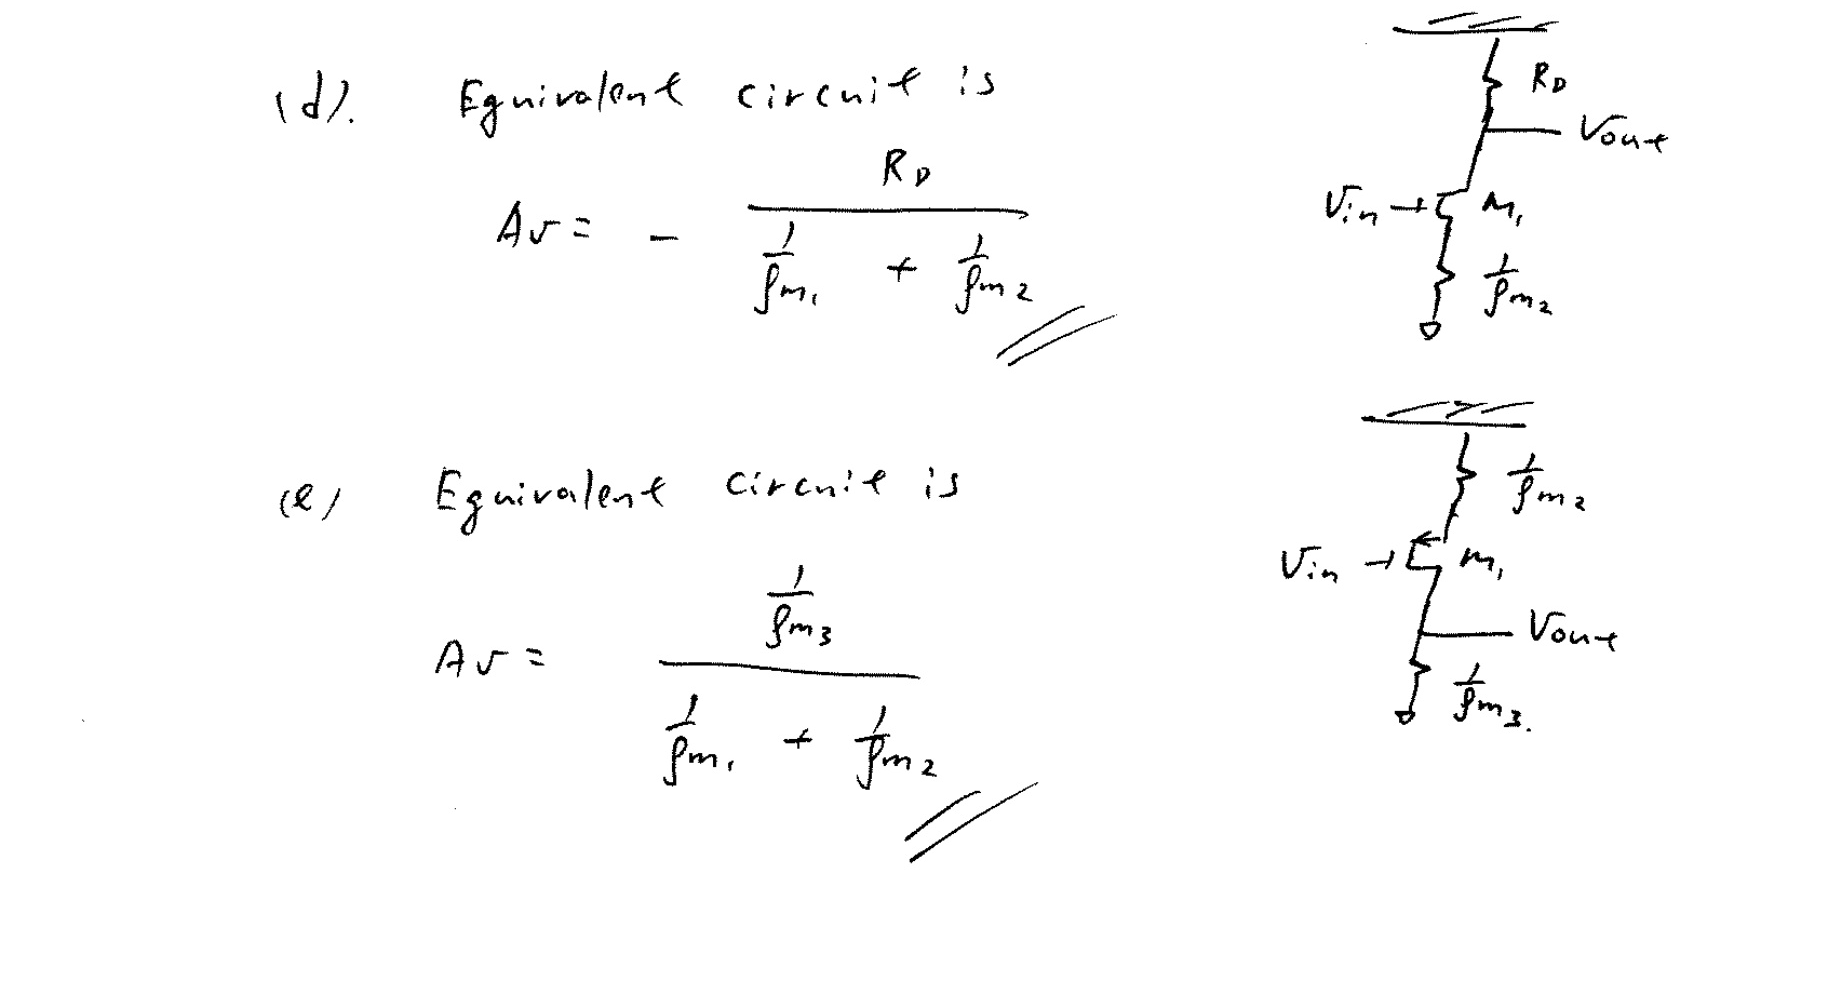 (d). Equivalent circuit is
Av = - RD / (1/gm1 + 1/gm2)
RD
Vout
Vin M1
1/gm2
(e) Equivalent circuit is
Av = (1/gm3) / (1/gm1 + 1/gm2)
1/gm2
Vin M1
Vout
1/gm3.